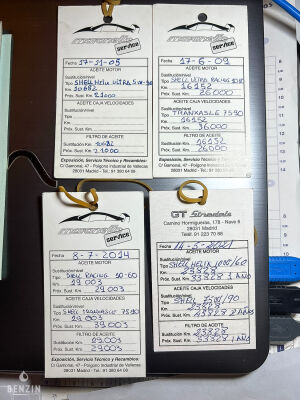 maranello
service
Fecha 17-11-05
ACEITE MOTOR
Sustitución/nivel
Tipo SHELL HELIX ULTRA 5W-40
Km. 10682
Próx. Sust. Km. 21000
ACEITE CAJA VELOCIDADES
Sustitución/nivel
Tipo
Km.
Próx. Sust. Km.
FILTRO DE ACEITE
Sustitución Km. 10682
Próx. Sust. Km. 21000
Exposición, Servicio Técnico y Recambios:
C/ Gamonal, 47 - Polígono Industrial de Vallecas
28031 Madrid - Tel.: 91 380 64 08
maranello
service
Fecha 17-6-09
ACEITE MOTOR
Sustitución/nivel
Tipo SHELL ULTRA RACING 10-60
Km. 16152
Próx. Sust. Km. 26000
ACEITE CAJA VELOCIDADES
Sustitución/nivel
Tipo TRANXASLE 75-90
Km. 16152
Próx. Sust. Km. 36000
FILTRO DE ACEITE
Sustitución Km. 16152
Próx. Sust. Km. 26000
Exposición, Servicio Técnico y Recambios:
C/ Gamonal, 47 - Polígono Industrial de Vallecas
28031 Madrid - Tel.: 91 380 64 08
maranello
service
Fecha 8-7-2014
ACEITE MOTOR
Sustitución/nivel
Tipo SHELL RACING 10-60
Km. 29.003
Próx. Sust. Km. 39.003
ACEITE CAJA VELOCIDADES
Sustitución/nivel
Tipo SHELL TRANSAXLE 75-90
Km. 29.003
Próx. Sust. Km. 39.003
FILTRO DE ACEITE
Sustitución Km. 29.003
Próx. Sust. Km. 39.003
Exposición, Servicio Técnico y Recambios:
C/ Gamonal, 47 - Polígono Industrial de Vallecas
28031 Madrid - Tel.: 91 380 64 08
GT Stradale
Camino Hormigueras, 178 - Nave 6
28031 Madrid
Fecha 14-5-2021
ACEITE MOTOR
Sustitución/nivel
Tipo SHELL HELIX 10W/60
Km.
Próx. Sust. Km. 1 AÑO
ACEITE CAJA VELOCIDADES
Sustitución/nivel
Tipo SHELL 75W/90
Km.
Próx. Sust. Km. 2 AÑOS
FILTRO DE ACEITE
Sustitución Km.
Próx. Sust. Km. 1 AÑO
BENZIN